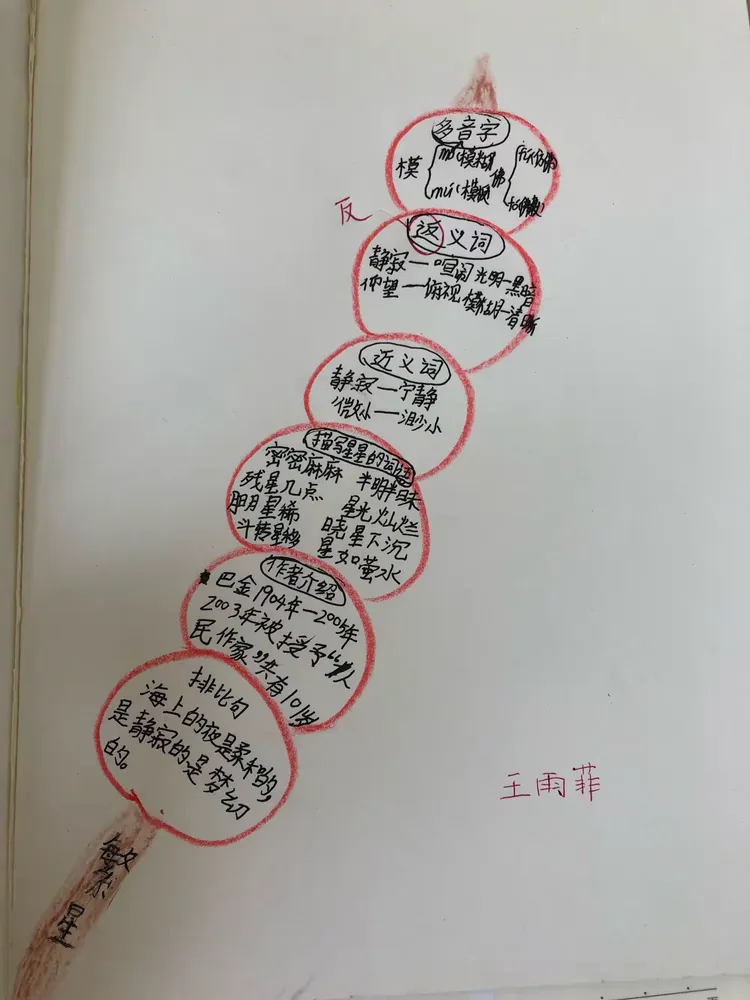 多音字
模 模糊 佛 仿佛
模
反
返义词
静寂—喧闹 光明—黑暗
仰望—俯视 模糊—清晰
近义词
静寂—宁静
微小—渺小
描写星星的词语
密密麻麻 半明半昧
残星几点 星光灿烂
月明星稀 晓星下沉
斗转星移 星如萤水
作者介绍
巴金1904年—2005年
2003年被授予“人
民作家”共有101岁
排比句
海上的夜是柔和的,
是静寂的是梦幻
的。
王雨菲
繁星